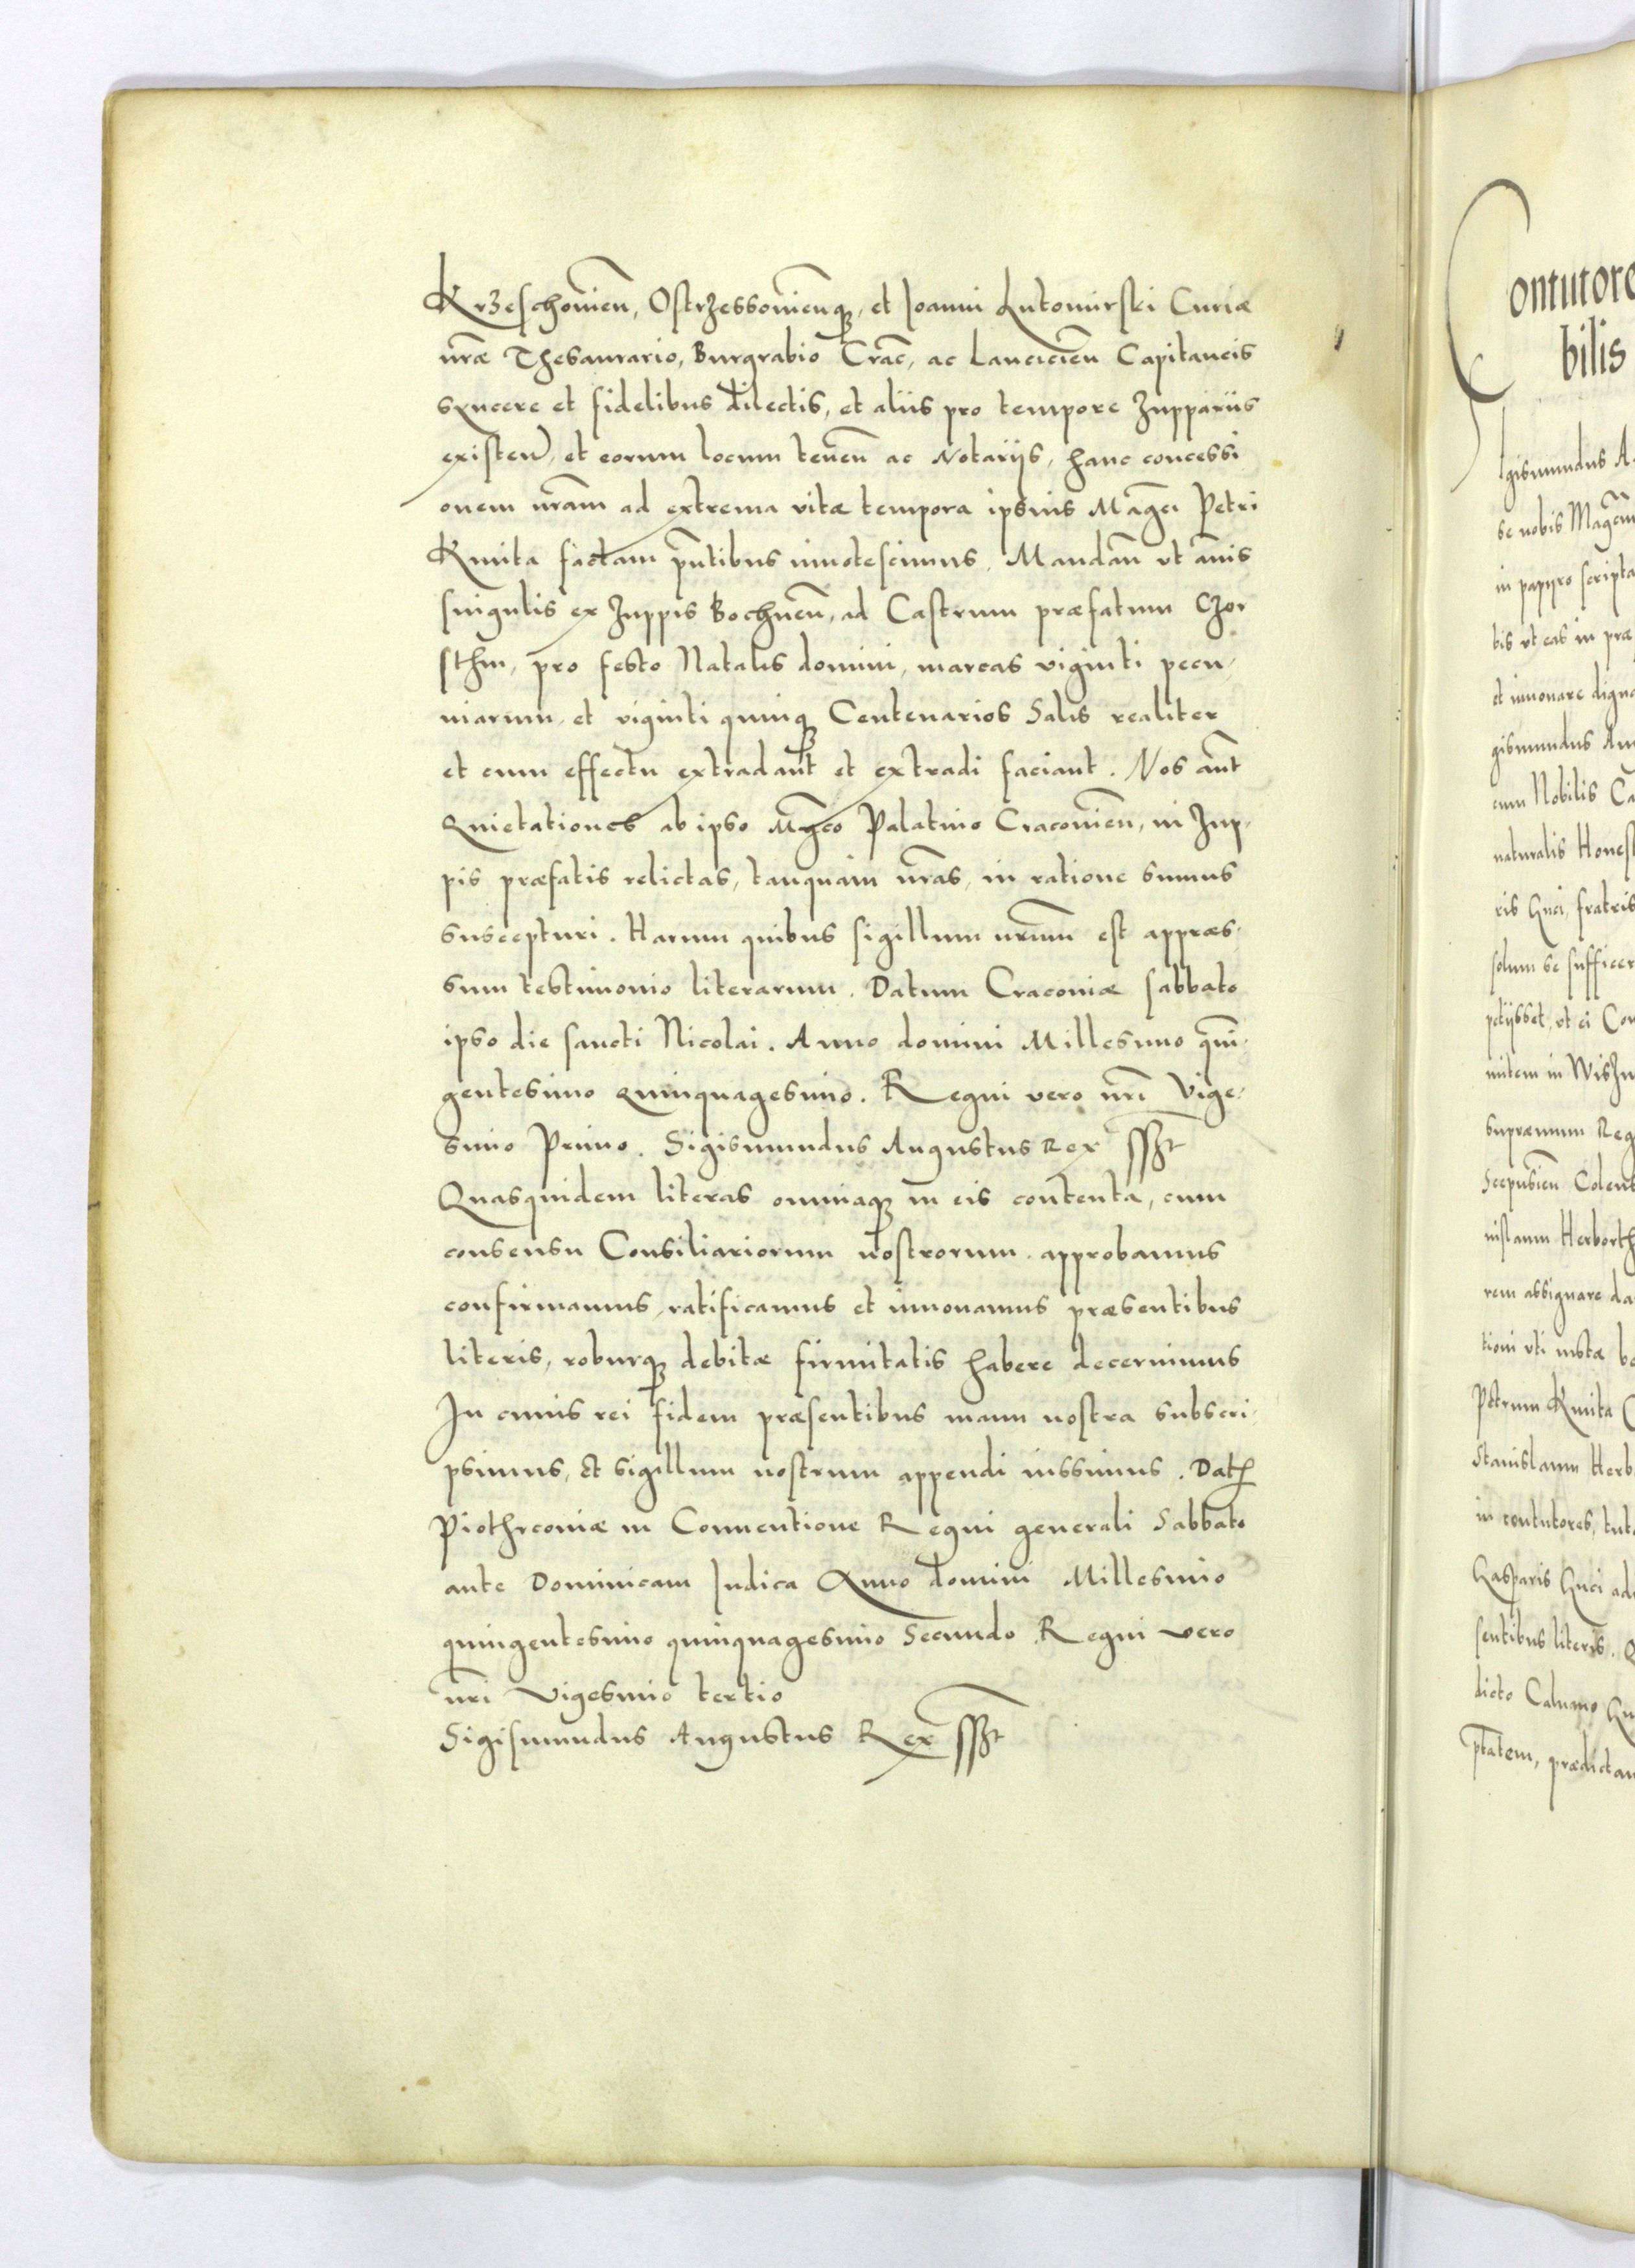 Krzeschovien̄, Ostrzessovienq̃, et Ioanni Lutomirski Curiæ
nr̄æ Thesaurario, Burgrabio Crac̄, ac Lancicien̄ Capitaneis
syncere et fidelibus dilectis, et aliis pro tempore Zuppariis
existen̄, et eorum locum tenen̄ ac Notariis, hanc concessi
onem nr̄am ad extrema vitæ tempora ipsius Mag̃ci Petri
Kmita factam pn̄tibus innotescimus. Mandam̄ vt an̄is
singulis ex Zuppis Bochnen̄, ad Castrum præfatum Czor
sthin, pro festo Natalis domini, marcas viginti pecu-
niarum, et viginti quinq̃ Centenarios Salis realiter
et cum effectu extradant et extradi faciant. Nos aut̄
Quietationes ab ipso Mg̃co Palatino Cracovien̄, in Zup-
pis præfatis relictas, tanquam nr̄as, in ratione sumus
suscepturi. Harum quibus sigillum nr̄um est appræs-
sum testimonio literarum. Datum Cracoviæ sabbato
ipso die sancti Nicolai. Anno domini Millesimo quin-
gentesimo Quinquagesimo. Regni vero nr̄i Vige-
simo Primo. Sigismundus Augustus Rex sszt
Quasquidem literas omniaq̃ in eis contenta, cum
consensu Consiliariorum nostrorum approbamus
confirmamus, ratificamus et innouamus præsentibus
literis, roburq̃ debitæ firmitatis habere decernimus
In cuius rei fidem præsentibus manu nostra subscri-
psimus, et sigillum nostrum appendi iussimus. Dat̃
Piothrcoviæ in Conuentione Regni generali Sabbato
ante Dominicam Iudica Anno domini Millesimo
quingentesimo quinquagesimo Secundo Regni vero
nr̄i Vigesimo tertio
Sigismundus Augustus Rex sszt
ontutore
bilis
Igismundus A
se nobis Mag̃cu
in papyro scripta
bis vt eas in præ
et innouare digna
gismundus Au
cum Nobilis Ca
naturalis Honest
fratris
solum se sufficer
petiisset, vt ei Con
supræmum Reg
Scepusien̄
nislaum Herborth
rem assignare da
tioni vti iustæ
Petrum Kmita
Stanislaum Herb
in contutores, tut
Gasparis
sentibus literis.
dicto
prædictam